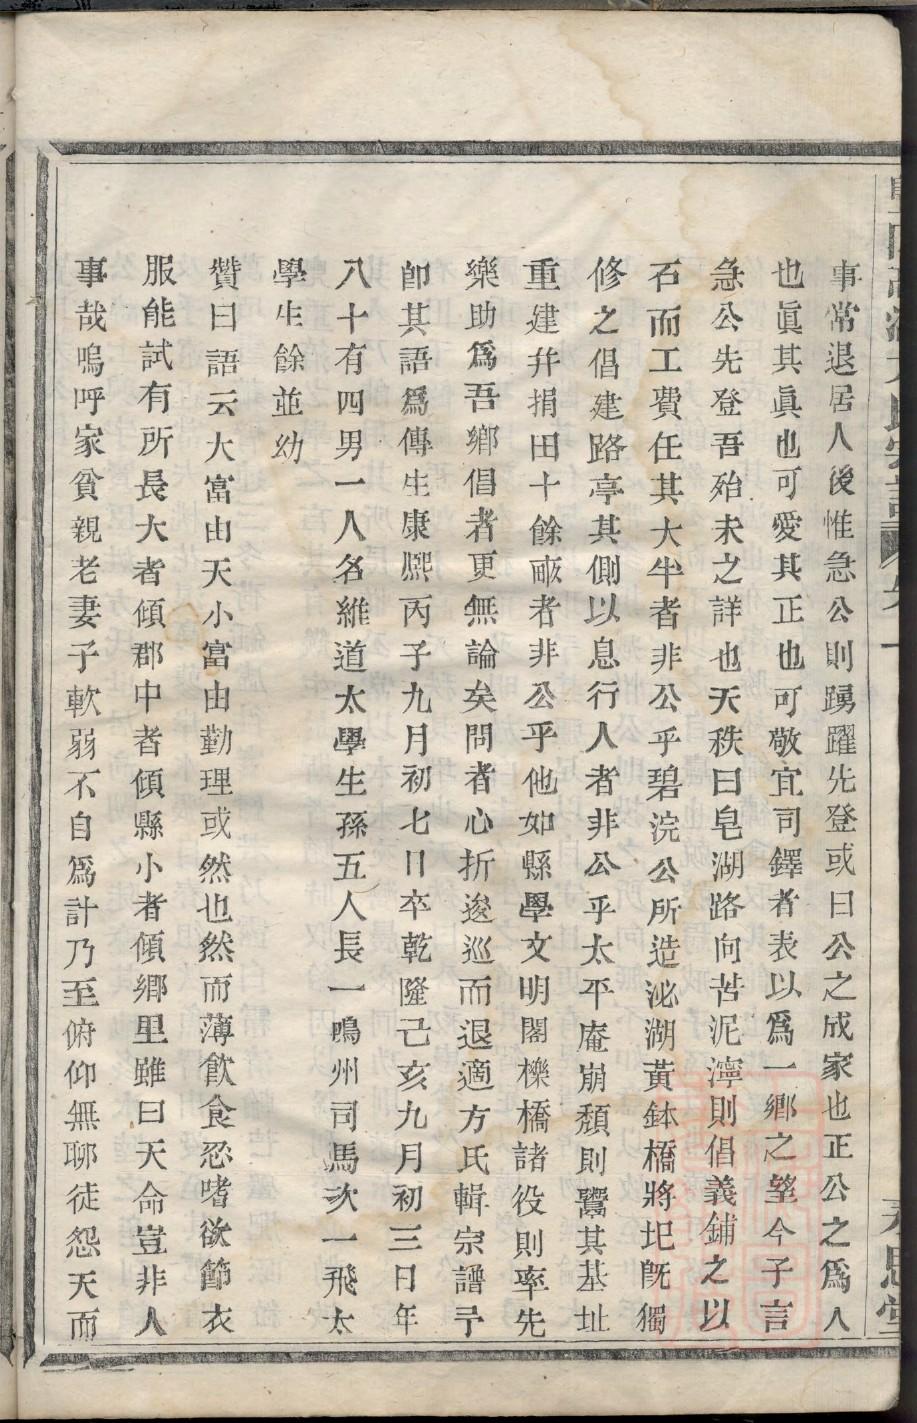 事常退居人後惟急公則踴躍先登或曰公之成家也正公之爲人
也眞其眞也可愛其正也可敬宜司鐸者表以爲一鄉之望今子言
急公先登吾殆未之詳也天秩曰皂湖路向苦泥濘則倡義鋪之以
石而工費任其大半者非公乎碧浣公所造泌湖黃鉢橋將圯旣獨
修之倡建路亭其側以息行人者非公乎太平庵崩頽則鬻其基址
重建幷捐田十餘畞者非公乎他如縣學文明閣櫟橋諸役則率先
樂助爲吾鄉倡者更無論矣問者心折逡巡而退適方氏輯宗譜予
卽其語爲傳生康熙丙子九月初七日卒乾隆己亥九月初三日年
八十有四男一人名維道太學生孫五人長一鳴州司馬次一飛太
學生餘並幼
贊曰語云大富由天小富由勤理或然也然而薄飮食忍嗜欲節衣
服能試有所長大者傾郡中者傾縣小者傾鄉里雖曰天命豈非人
事哉嗚呼家貧親老妻子軟弱不自爲計乃至俯仰無聊徒怨天而